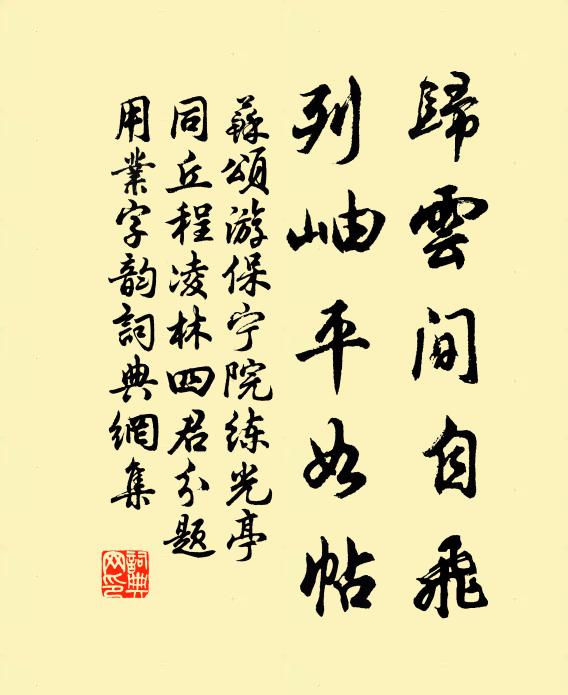 歸雲間自飛
列岫平如帖
蘇頌游保宁院练光亭
同丘程凌林四君分题
用業字韵詞典網集
詞典网印